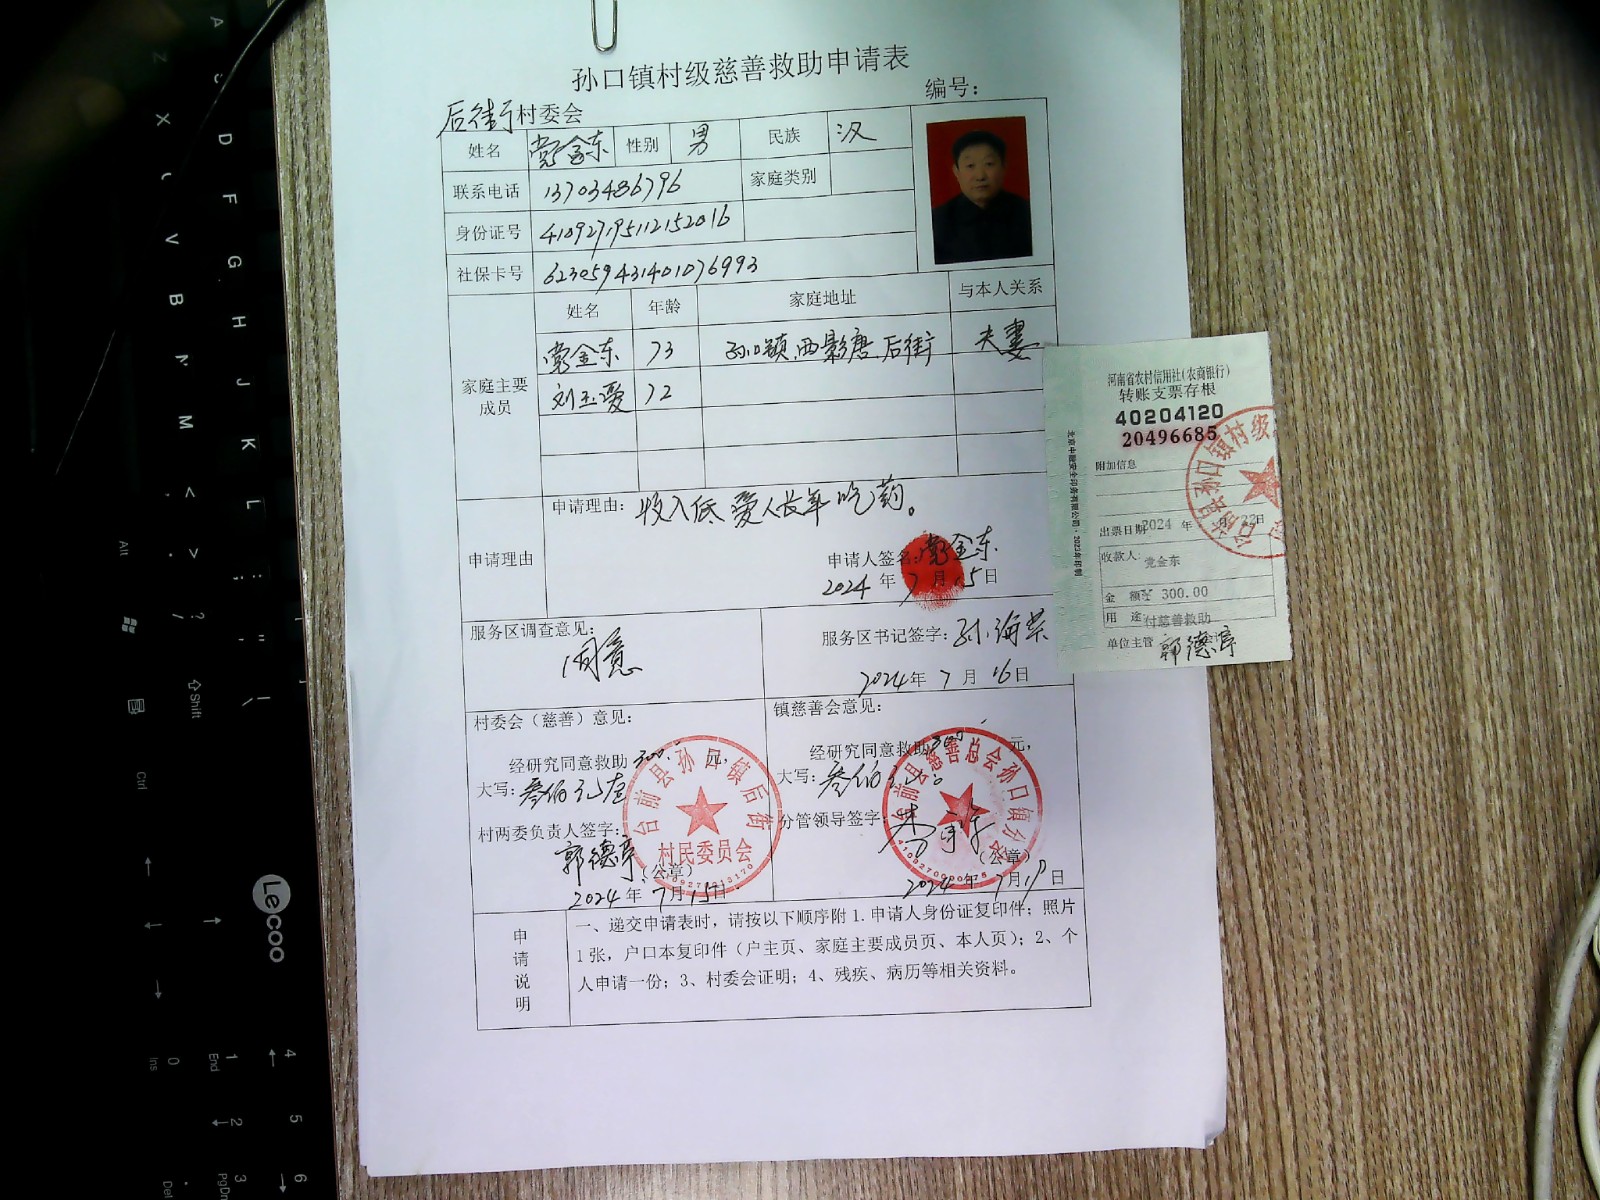 孙口镇村级慈善救助申请表
编号：
后街村委会
姓名 党金东 性别 男 民族 汉
联系电话 13703486796 家庭类别
身份证号 410927195112152016
社保卡号 623059431401076993
姓名 年龄 家庭地址 与本人关系
家庭主要成员
党金东 73 孙口镇西影唐后街 夫妻
刘玉爱 72
申请理由
申请理由：收入低 爱人长年吃药。
申请人签名：党金东
2024年7月15日
服务区调查意见：
同意
服务区书记签字：孙海荣
2024年7月16日
村委会（慈善）意见：
经研究同意救助 300. 元，
大写：叁佰元整
村两委负责人签字：
郭德亭
（公章）
2024年7月15日
台前县孙口镇后街
村民委员会
镇慈善会意见：
经研究同意救助 300. 元，
大写：叁佰元
分管领导签字：
（公章）
2024年7月19日
台前县慈善总会孙口镇分会
申请说明
一、递交申请表时，请按以下顺序附 1.申请人身份证复印件；照片
1张，户口本复印件（户主页、家庭主要成员页、本人页）；2、个
人申请一份；3、村委会证明；4、残疾、病历等相关资料。
河南省农村信用社（农商银行）
转账支票存根
40204120
20496685
附加信息
出票日期 2024 年 月 22日
收款人：党金东
金 额：¥ 300.00
用 途：付慈善救助
单位主管 郭德亭
孙口镇村级
Lecoo
A
Z
X
D
C
F
V
G
B
H
N
J
M
K
L
Alt
Shift
Ctrl
0
Ins
1
End
2
3
PgDn
4
5
6
Del